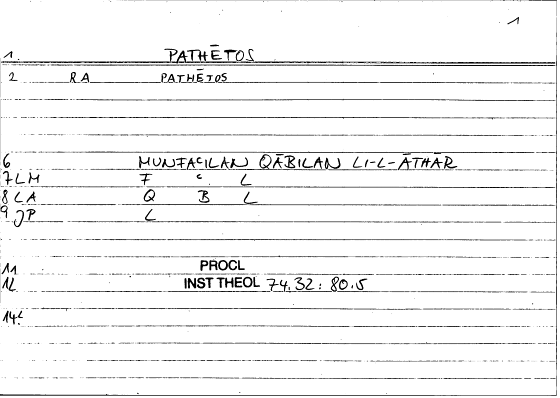 1
1. PATHĒTOS
2 RA PATHĒTOS
6 MUNFAʿILAN QĀBILAN LI-L-ĀTHĀR
7 LM F ʿ L
8 LA Q B L
9 JP L
11 PROCL
12 INST THEOL 74.32 : 80.5
14